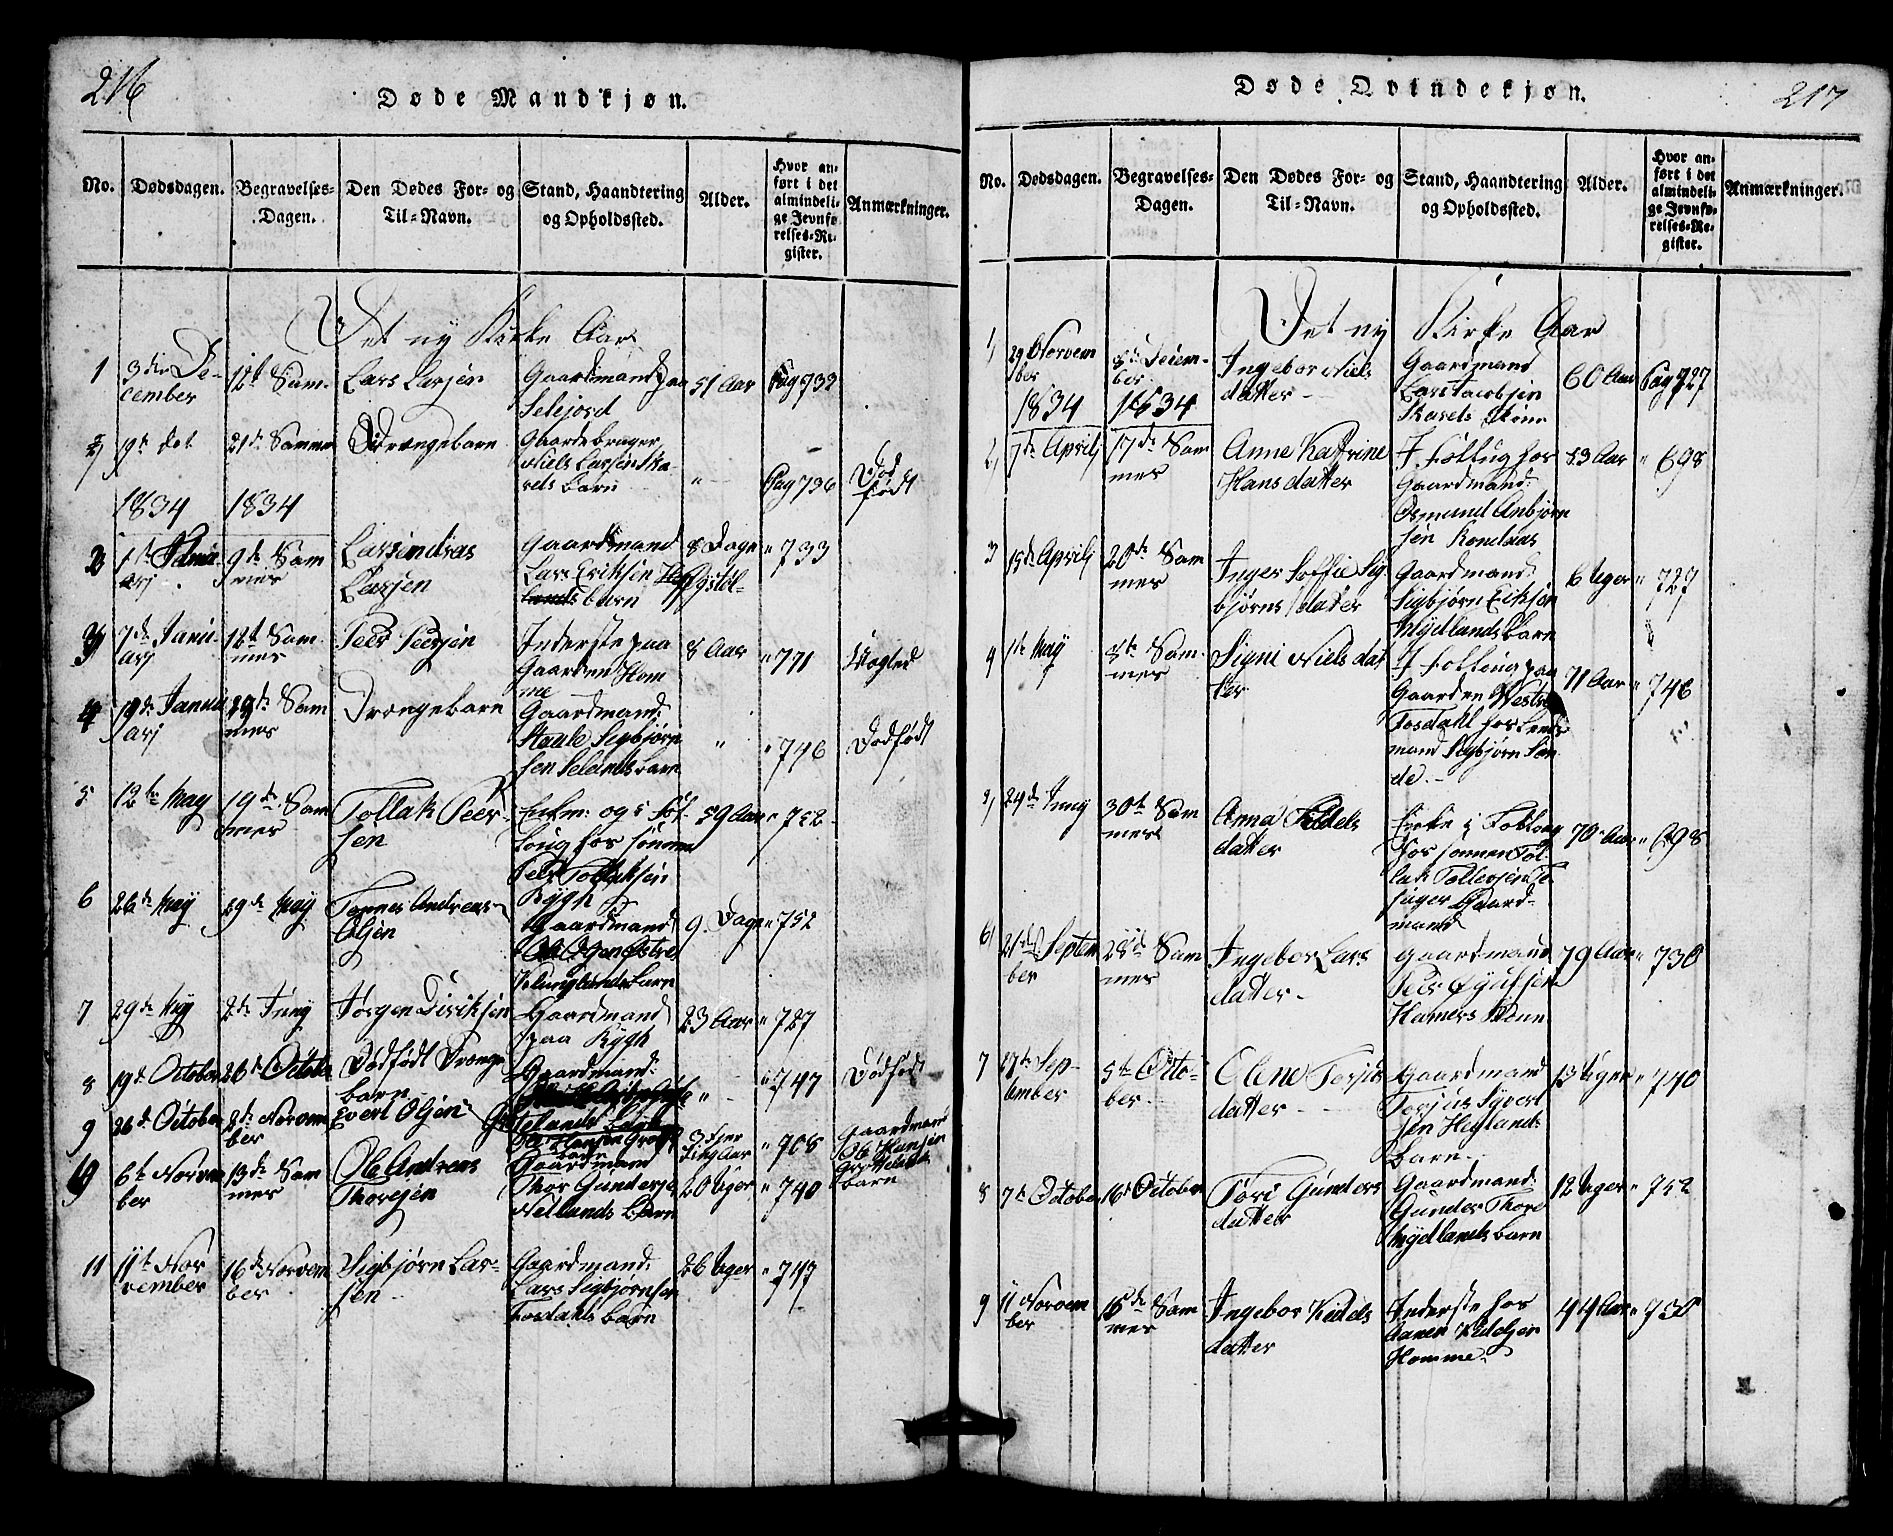 216
Døde Mandkjøn.
No. Dødsdagen. Begravelses-Dagen. Den Dødes For- og Til-Navn. Stand, Haandtering og Opholdssted. Alder. Hvor anført i det almindelige Jevnførelses-Register. Anmærkninger.
Det ny Kirke Aar
1 3die December 12t Sam. Lars Larsen Gaardmand paa Selejord 51 Aar Pag 732
2 19de det 21de Samme Drængebarn Gaardebruger Niels Larsen Skarels barn " Pag 736 Død født
1834 1834
3 1t Januarj 9de Sammes Larsendreas Larsen Gaardmand Lars Eriksen barn 8 Dage " 733
3 7de Januarj 12t Sammes Peer Peersen Inderste paa Gaarden Homme 8 Aar " 771
4 19de Januarj 29de Sammes Drængebarn Gaardmand Staale Sigbjørnsen Selands barn " " 746 Dødfødt
5 12te May 19de Sammes Tollak Peersen og i Følloug hos sønnen Peer Tollaksen Rygh 59 Aar " 752
6 26de May 29de May Tønnes Andreas Olsen Gaardmand Ole Østre Klunglands barn 9 Dage " 752
7 29de May 2de Juny Jørgen Diriksen Gaardmand paa Rygh 23 Aar " 727
8 19de October 26de October Dødfødt Drængebarn Gaardmand " " 747 Dødfødt
9 26de October 2de November Evert Olsen Ole Hansen barn 3 fjerding Aar " 708 Gaardmand Ole Hansen barn
10 6te November 13de Sammes Ole Andreas Thoresen Gaardmand Thor Gundersen Netlands Barn 20 Uger " 740
11 11te November 16de November Sigbjørn Larsen Gaardmand Lars Sigbjørnsen Fosdals barn 26 Uger " 747
217
Døde Qvindekjøn.
No. Dødsdagen. Begravelses-Dagen. Den Dødes For- og Til-Navn. Stand, Haandtering og Opholdssted. Alder. Hvor anført i det almindelige Jevnførelses-Register. Anmærkninger.
Det ny Kirke Aar
1 29 November December Ingebor Niels datter Gaardmand Lars Jacobsen Skarels Kone 60 Aar Pag 727
1834 1834
2 7de Aprilj 17de Sammes Anne Katrine Hans datter I Follug hos Gaardmand Osmund Anbjørnsen 83 Aar " 698
3 15de Aprilj 20de Sammes Inger Soffie Sigbjørns datter Gaardmand Sigbjørn Eriksen Mydlands Barn 6 Uger " 727
4 1te May 8te Sammes Signi Niels datter I Follug paa Gaarden Westre Fosdahl hos Lendsmand Sigbjørn Sande 71 Aar " 746
24de Juny 30te Sammes Anna Kedels datter Enke i Follug hos sønnen Tollak Tollessen Gaardmand 70 Aar " 698
6 21de September 28de Sammes Ingebor Lars datter Gaardmand Peer 79 Aar " 730
7 27de September 5te October Olene Torjus datter Gaardmand Torjus Syvertsen Heglands Barn 13 Uger " 740
8 7de October 16de October Tori Gunders datter Gaardmand Gunder Thore Mydlands barn 12 Uger " 752
9 11 November 16de Sammes Ingebor Kedels datter Inderste hos Aanen Kedelsen Homme 44 Aar " 750